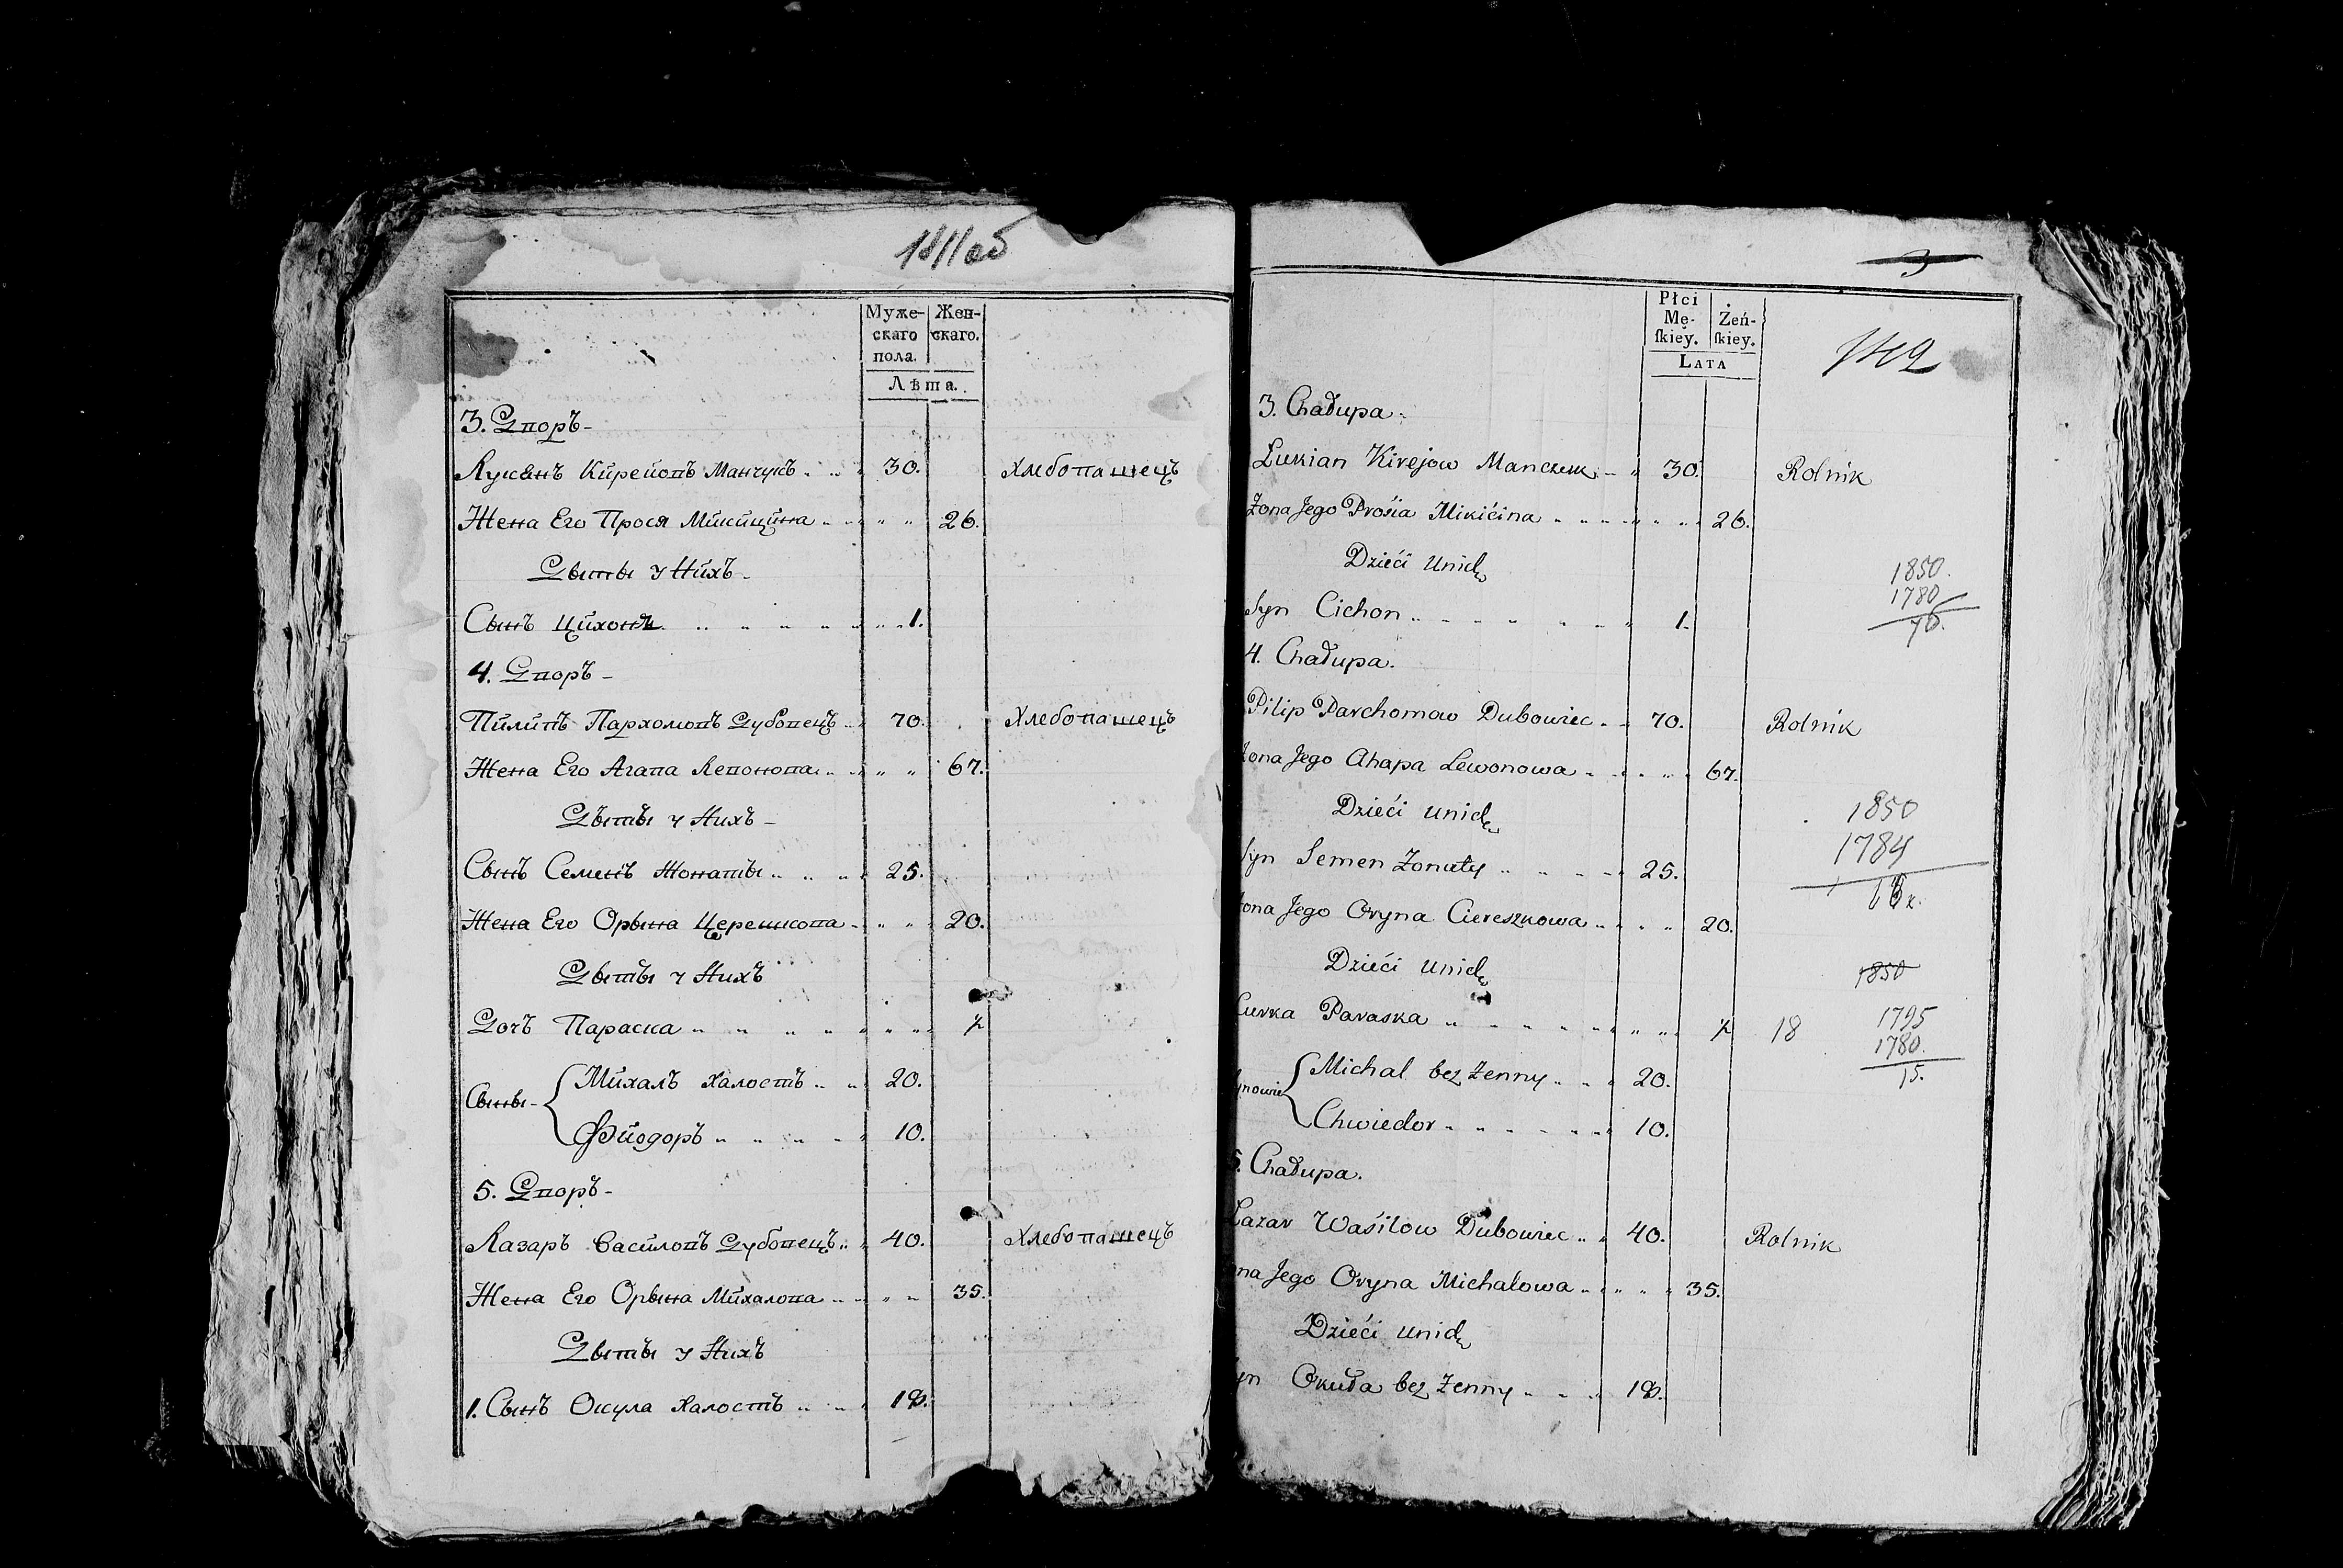 1411об
Муже-
скаго
пола.
Жен-
скаго.
Лѣта.
3. Дворъ-
Лукянъ Кирейовъ Манчукъ 30. Хлебопашецъ
Жена Его Прося Микицина 26.
Дѣти у Нихъ-
Сынъ Цихонъ 1.
4. Дворъ-
Пилипъ Пархомовъ Дубовецъ 70. Хлебопашецъ
Жена Его Агапа Левонова 67.
Дѣты у Нихъ-
Сынъ Семенъ Жонаты 25.
Жена Его Орына Церешкова 20.
Дѣты у Нихъ
Дочъ Параска ½
Сыны- Михалъ Халостъ 20.
Фйодоръ 10.
5. Дворъ-
Лазаръ Василовъ Дубовецъ 40. Хлебопашецъ
Жена Его Орына Михалова 35.
Дѣты у Нихъ
1. Сынъ Окула Халостъ 18.
Płci
Mę-
ſkiey.
Żeń-
ſkiey.
Lata
3. Chałupa.
Lukian Kirejow Manczuk 30. Rolnik
Żona Jego Prośia Mikićina 26.
Dzieći Unich
Syn Cichon 1.
1850.
1780
70.
4. Chałupa.
Pilip Parchomow Dubowiec 70. Rolnik
Żona Jego Ahapa Lewonowa 67.
Dzieći unich
Syn Semen Żonaty 25.
1850
1784
Żona Jego Oryna Ciereszkowa 20.
Dzieći unich
1850
Curka Paraska ½ 18
1795
1780.
15.
Synowie Michal bez Żenny 20.
Chwiedor 10.
5. Chałupa.
Łazar Waśilow Dubowiec 40. Rolnik
Żona Jego Oryna Michałowa 35.
Dzieći unich
Syn Okuła bez Żenny 18.